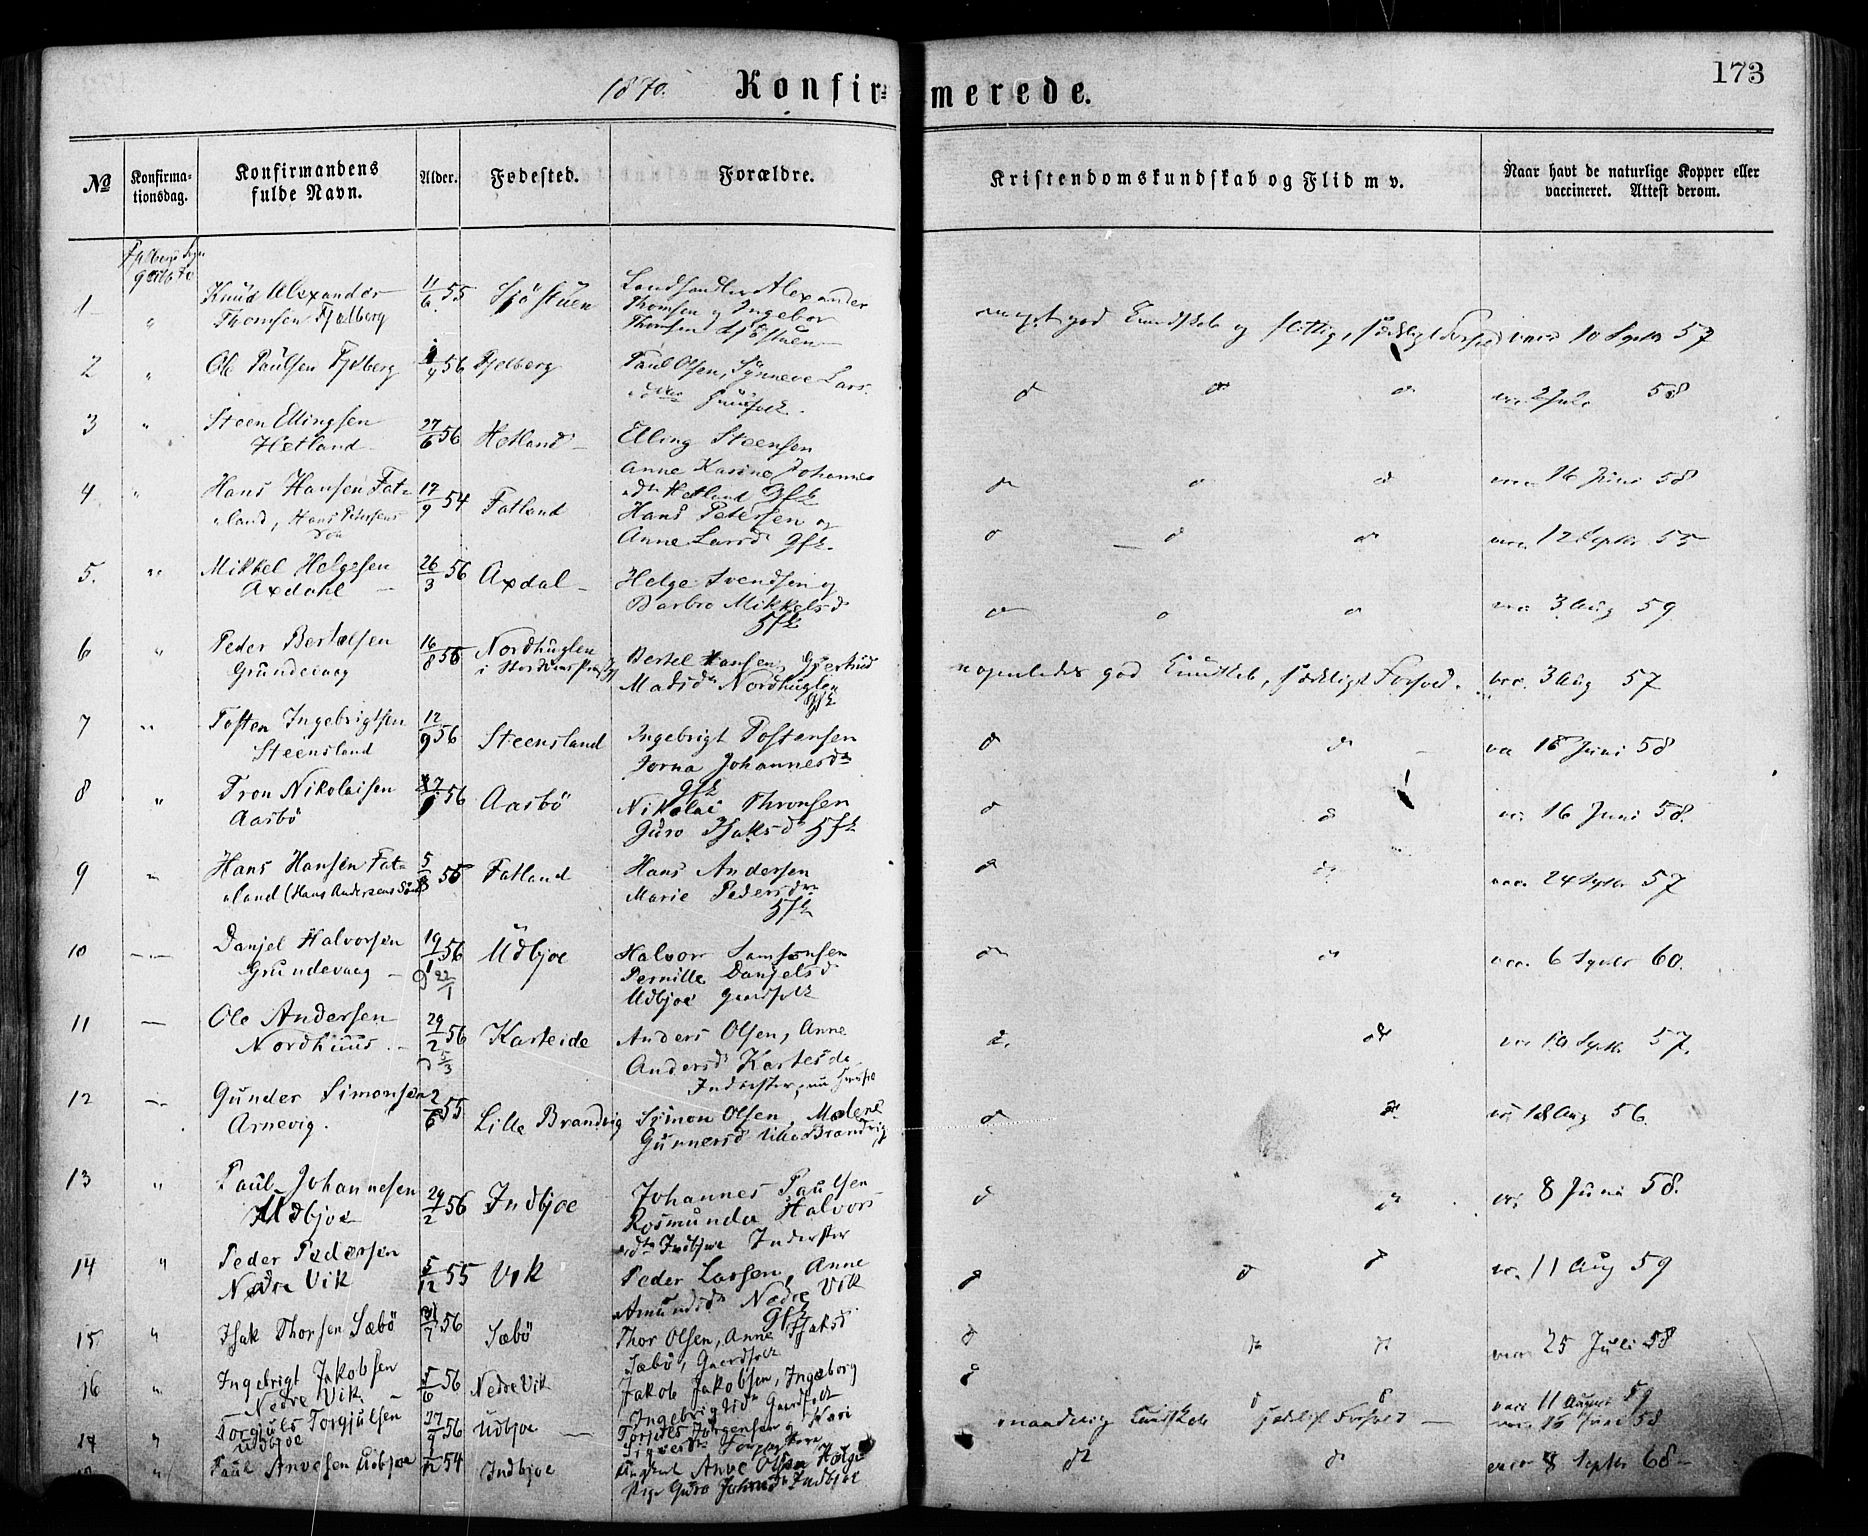 1870.
Konfirmerede.
173
№
Konfirma-
tionsdag.
Konfirmandens
fulde Navn.
Alder.
Fødested.
Forældre.
Kristendomskundskab og Flid m v.
Naar havt de naturlige Kopper eller
vaccineret. Attest derom.
1 " Knud Alexander
Thomsen Fjelberg
11/6 55
Sjöstuen
Landhandler Alexander
Thomsen og Ingebor
Thomsen Sjöstuen
meget god Kundskab og flittig, sædeligt Forhold
10 Septr 57
2 " Ole Paulsen Fjelberg
56 Fjelberg
Paul Olsen, Synneve Lars-
datter Huusfolk.
d d d
2 Juli 58
3 " Steen Ellingsen
Hetland
27/6 56
Hetland
Elling Steensen
Anne Karine Johannes
dtr Hetland Gfk
d d d
16 Juni 58
4 " Hans Hansen Fat-
land, Hans Petersens
Søn
17/9 54
Fatland
Hans Petersen og
Anne Larsd Gfk.
d d d
12 Septr 55
5. " Mikkel Helgesen
Axdahl
26/3 56
Axdal
Helge Svendsen og
Barbro Mikkelsd
Hfk
d d d
3 Aug 59
6 " Peder Bertelsen
Grundevaag
16/8 55
Nordhuglen
i Stordöens Præstgj
Bertel Hansen, Gjertrud
Madsdr Nordhuglen
Gfk
nogenledes god Kundskab, sædeligt Forhold.
3 Aug 57
7 " Tosten Ingebrigtsen
Steensland
12/9 56
Steensland
Ingebrigt Tostensen
Jorna Johannesdr
Gfk
d d
18 Juni 58
8 " Tron Nikolaisen
Aasbö
56 Aasbö
Nikolai Thronsen
Guro Isaksdr Hfk
d d
16 Juni 58.
9 " Hans Hansen Fat-
land (Hans Andersens Søn)
5/8 55
Fatland
Hans Andersen
Marie Pedersdr
Hfk
d d
24 Septr 57
10 " Danjel Halvorsen
Grundevaag
19/1 56
D 22/1
Udbjoe
Halvor Samsonsen
Pernille Danjelsd
Udbjoe Gaardfolk
d d
6 Septr 60.
11 Ole Andersen
Nordhuus.
29/2 56
D 5/3
Karteide
Anders Olsen, Anne
Andersdr Karteide
Inderster, nu Huusfol
d. d
10 Septr 57.
12 Gunder Simonsen
Arnevig.
2/6 55
Lille Brandvig
Simon Olsen, Malene
Gunnersd Lille Brandvig
d. d.
18 Aug 56.
13 " Paul Johannesen
Udbjoe
29/2 56
Indbjoe
Johannes Paulsen
Rosmunda Halvors
dtr Indbjoe Inderster
d d
8 Juni 58.
14 " Peder Pedersen
Nedre Vik
5/12 55
Vik
Peder Larsen, Anne
Amundsdr Nedre Vik
Gfk
d d d
11 Aug 59
15 " Isak Thorsen Sæbö
31/7 56
Sæbö
Thor Olsen, Anne Isaksd
Sæbö, Gaardfolk
d d d
25 Juli 58
16 " Ingebrigt Jakobsen
Nedre Vik.
5/6 56
Nedre Vik
Jakob Jakobsen, Ingeborg
Ingebrigtsdr Gaardfolk
d d d
11 August 59
17 " Torgjuls Torgjulsen
Udbjoe
56 Udbjoe
Sigvordr
maadelig Kundskab sædeligt Forhold
16 Juni 58
" Paul Anvesen Udbjoe
54 Indbjoe
Ungkarl Anve Olsen Helge
Pige Guro Johnsdr Indbjoe
d d
8 Septbr 68